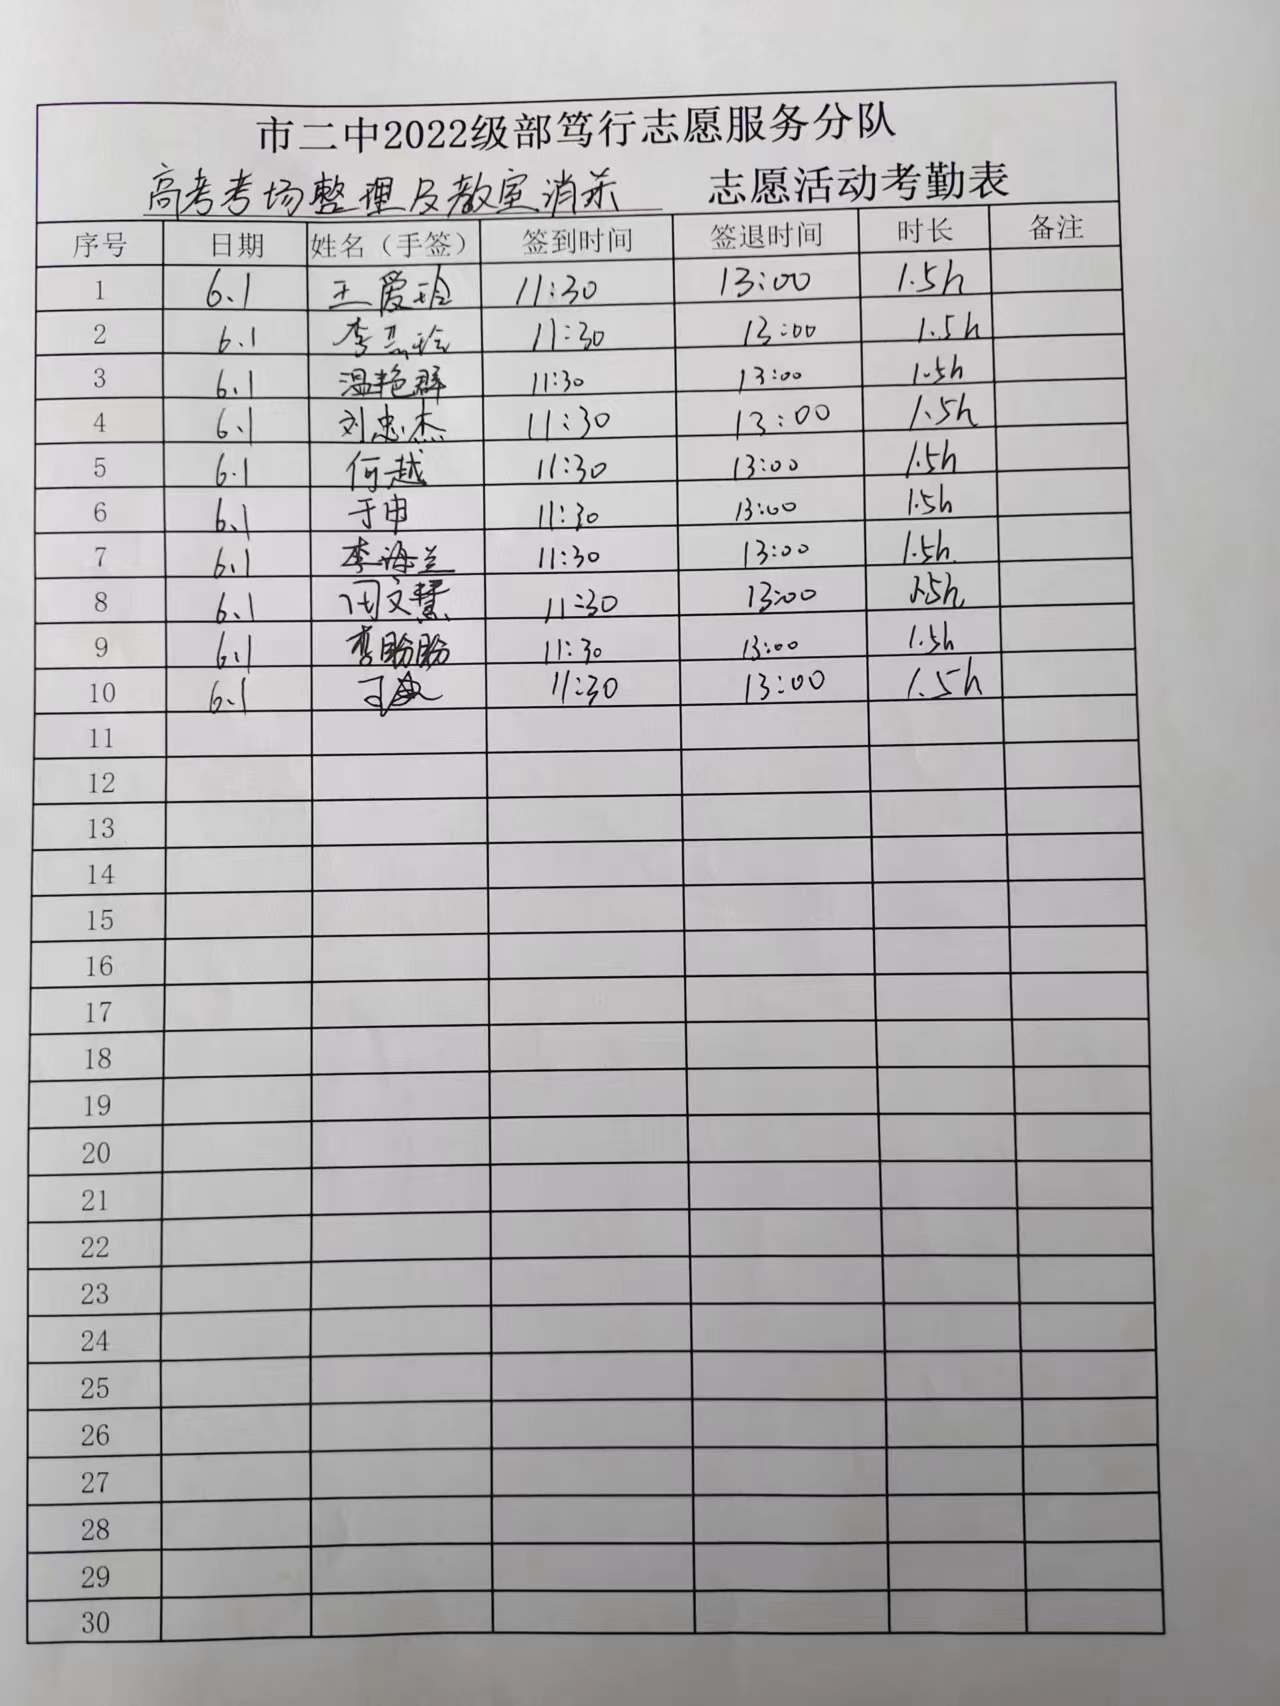 市二中2022级部笃行志愿服务分队
高考考场整理及教室消杀 志愿活动考勤表
序号 日期 姓名（手签） 签到时间 签退时间 时长 备注
1 6.1 王爱玲 11:30 13:00 1.5h
2 6.1 11:30 13:00 1.5h
3 6.1 温艳群 11:30 13:00 1.5h
4 6.1 刘忠杰 11:30 13:00 1.5h
5 6.1 何越 11:30 13:00 1.5h
6 6.1 于申 11:30 13:00 1.5h
7 6.1 李海兰 11:30 13:00 1.5h
8 6.1 闫文慧 11:30 13:00 1.5h
9 6.1 李盼盼 11:30 13:00 1.5h
10 6.1 11:30 13:00 1.5h
11
12
13
14
15
16
17
18
19
20
21
22
23
24
25
26
27
28
29
30